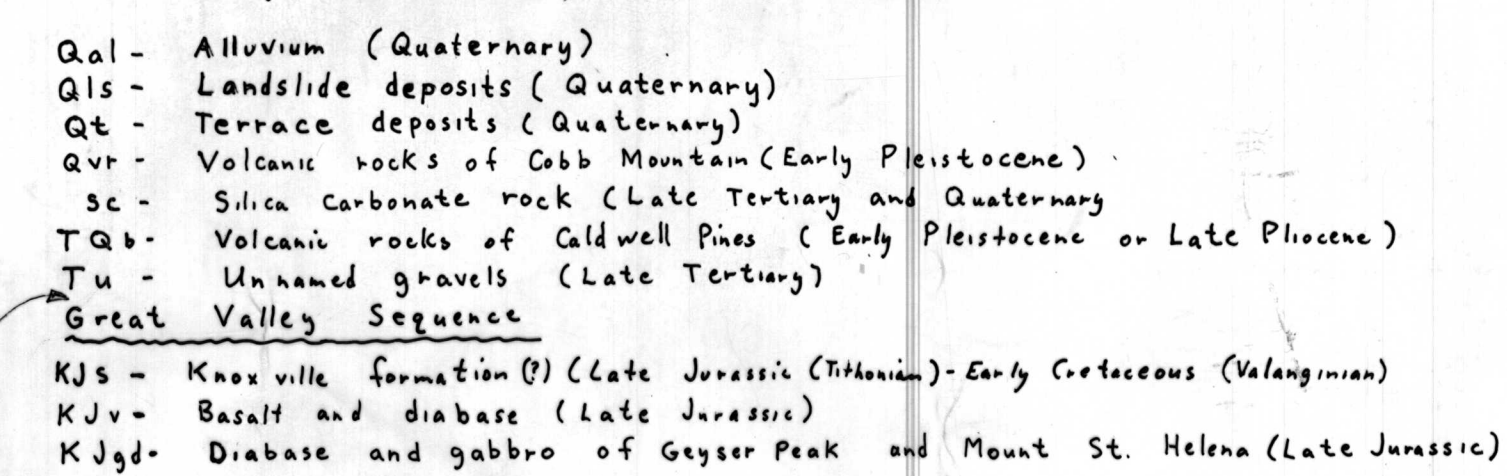 Qal - Alluvium (Quaternary)
Qls - Landslide deposits ( Quaternary)
Qt - Terrace deposits ( Quaternary)
Qvr - Volcanic rocks of Cobb Mountain (Early Pleistocene)
sc - Silica carbonate rock (Late Tertiary and Quaternary
TQb- Volcanic rocks of Caldwell Pines ( Early Pleistocene or Late Pliocene )
Tu - Unnamed gravels (Late Tertiary)
Great Valley Sequence
KJs - Knoxville formation (?) (Late Jurassic (Tithonian) - Early Cretaceous (Valanginian)
KJv - Basalt and diabase (Late Jurassic)
KJgd- Diabase and gabbro of Geyser Peak and Mount St. Helena (Late Jurassic)